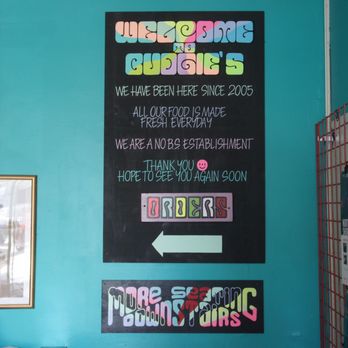 WELCOME
TO
BUDGIE'S
WE HAVE BEEN HERE SINCE 2005
ALL OUR FOOD IS MADE
FRESH EVERYDAY
WE ARE A NO B.S ESTABLISHMENT
THANK YOU
HOPE TO SEE YOU AGAIN SOON
ORDERS
MORE SEATING
DOWNSTAIRS